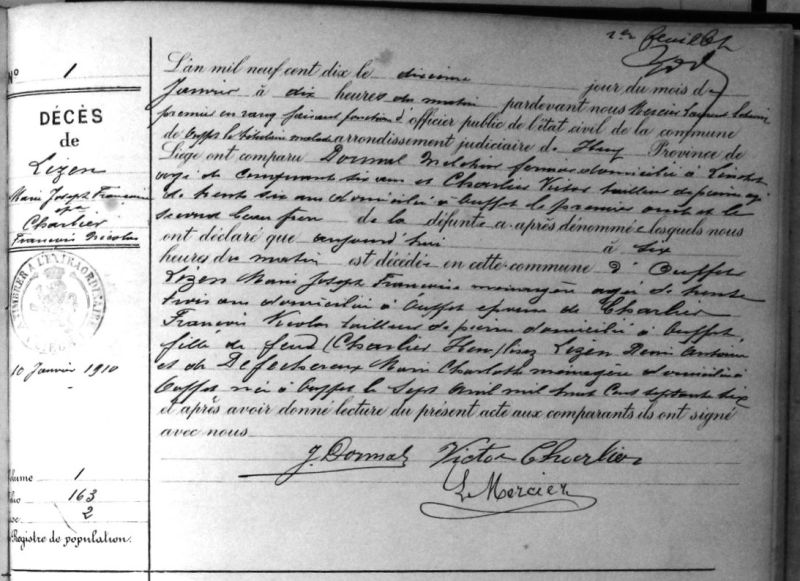 1er feuillet
N° 1
DÉCÈS
de
Lizen
Marie Joseph Françoise
épse
Charlier
François Nicolas
A TIMBRER A L'EXTRAORDINAIRE
10 Janvier 1910
Volume 1
Folio 163
2
Registre de population.
L'an mil neuf cent dix le dixième jour du mois de
Janvier à dix heures du matin pardevant nous Mercier Laurent
premier en rang faisant fonction d'officier public de l'état civil de la commune
de Ouffet le titulaire malade arrondissement judiciaire de Huy Province de
Liège ont comparu Dormal Melchior fermier domicilié à
agé de cinquante six ans et Charlier Victor tailleur de pierre agé
de trente six ans domicilié à Ouffet le premier oncle et le
second beau frère de la défunte ci après dénommée lesquels nous
ont déclaré que aujourd'hui à six
heures du matin est décédée en cette commune d'Ouffet
Lizen Marie Joseph Françoise ménagère agée de trente
trois ans domiciliée à Ouffet épouse de Charlier
François Nicolas tailleur de pierre domicilié à Ouffet
fille de feud (Charlier Hen) lisez Lizen Antoine
et de Defechereux Marie Charlotte ménagère domiciliée à
Ouffet née à Ouffet le sept avril mil huit cent septante six
et après avoir donné lecture du présent acte aux comparants ils ont signé
avec nous
J. Dormal Victor Charlier
L. Mercier